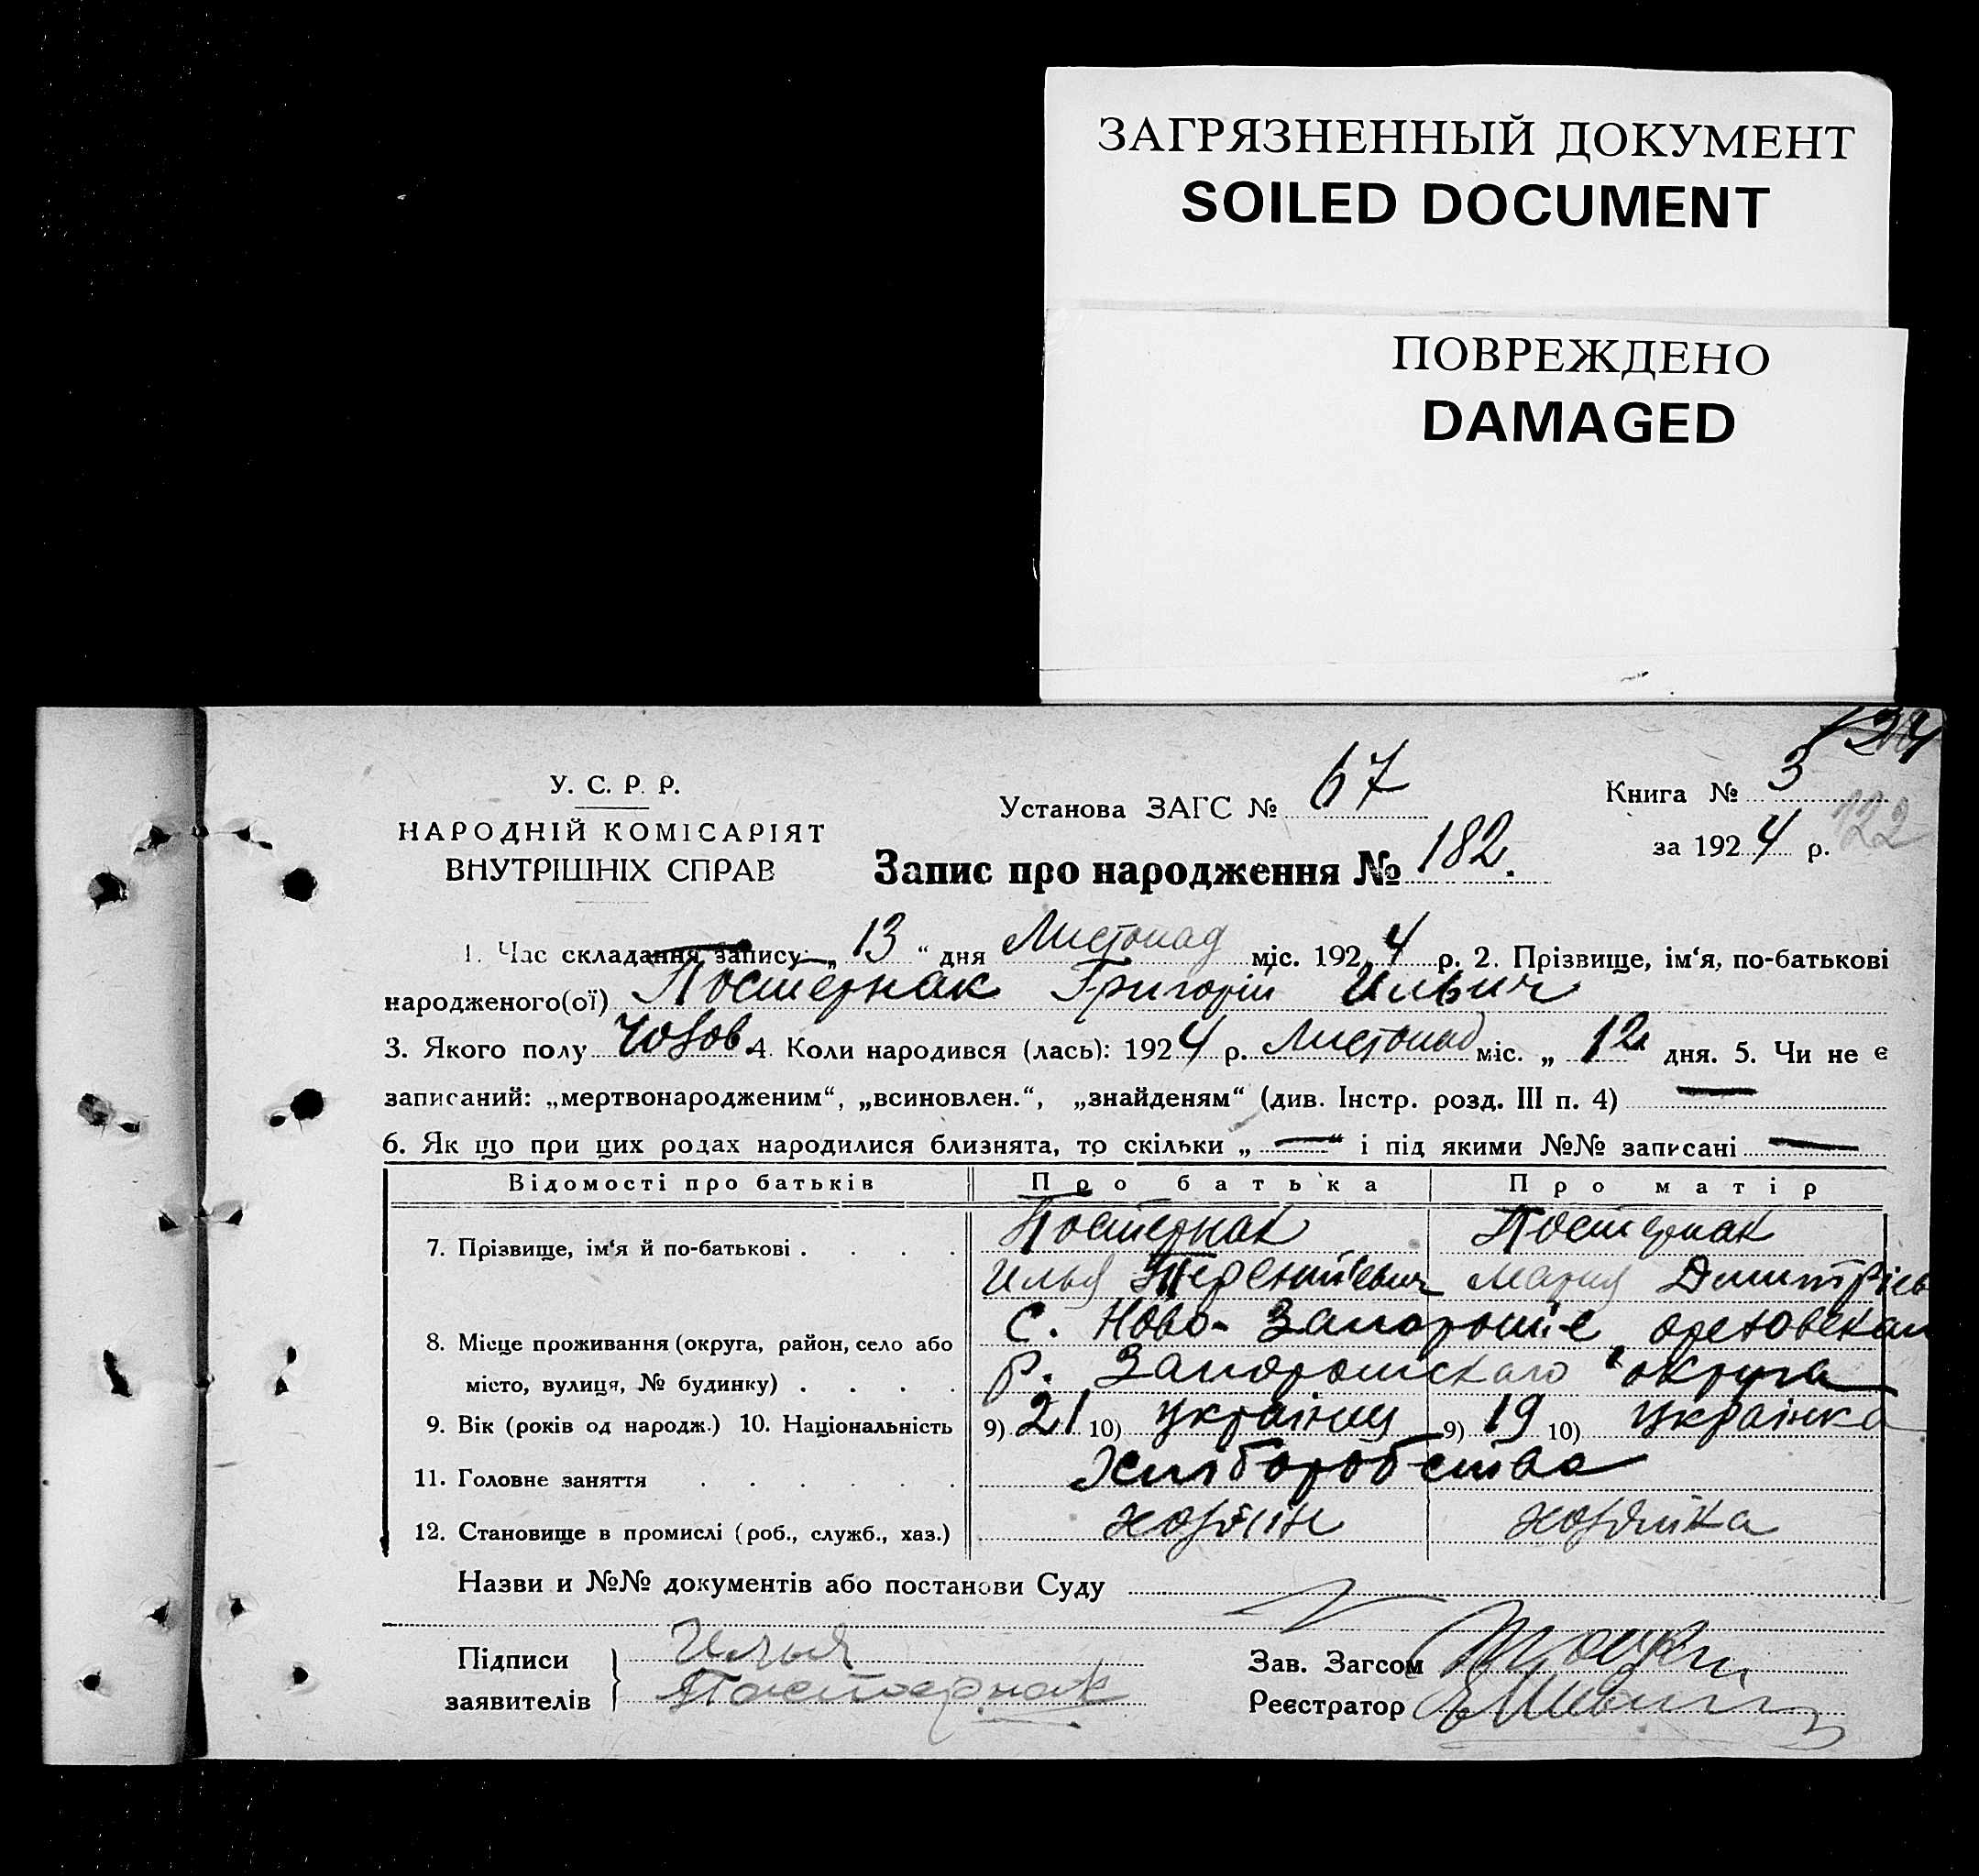 ЗАГРЯЗНЕННЫЙ ДОКУМЕНТ
SOILED DOCUMENT
ПОВРЕЖДЕНО
DAMAGED
124
У. С. Р. Р.
НАРОДНІЙ КОМІСАРІЯТ
ВНУТРІШНІХ СПРАВ
Установа ЗАГС № 67
Книга № 3
за 1924 р. 122
Запис про народження № 182.
1. Час складання запису: „13“ дня Листопад міс. 1924 р. 2. Прізвище, ім‘я, по-батькові
народженого(ої) Постернак Григорій Ильич
3. Якого полу чолов. 4. Коли народився (лась): 1924 р. Листопад міс. „12“ дня. 5. Чи не є
записаний: „мертвонародженим“, „всиновлен.“, „знайденям“ (див. Інстр. розд. III п. 4) —
6. Як що при цих родах народилися близнята, то скільки „—“ і під якими №№ записані —
Відомості про батьків Про батька Про матір
7. Прізвище, ім‘я й по-батькові . . . . Постернак Постернак
Илья Терентіевич Мария Дмитрієв
8. Місце проживання (округа, район, село або С. Ново-Запорожіе
місто, вулиця, № будинку) . . . . р. Запорожскаго округа
9. Вік (років од народж.) 10. Національність 9) 21 10) українец 9) 19 10) українка
11. Головне заняття . . . . . . Хлиборобства
12. Становище в промислі (роб., служб., хаз.) хозяін хозяйка
Назви и №№ документів або постанови Суду
Підписи заявителів } Илья
Постернак
Зав. Загсом
Реєстратор